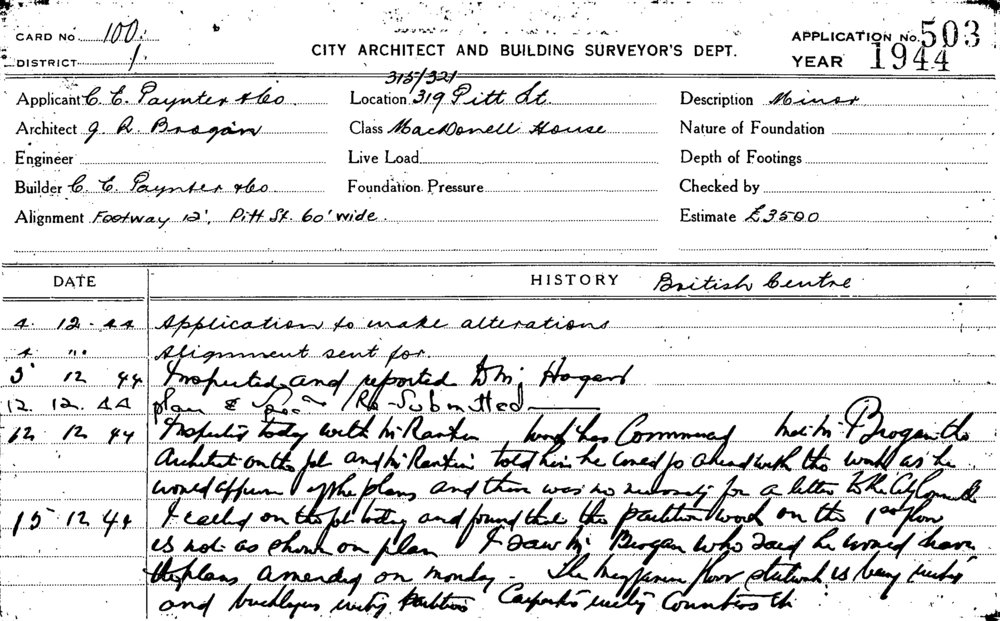 CARD No. 100.
DISTRICT 1
CITY ARCHITECT AND BUILDING SURVEYOR'S DEPT.
APPLICATION No. 503
YEAR 1944
Applicant C. E. Paynter & Co
Architect J. R. Brogan
Engineer
Builder C. E. Paynter & Co
Alignment Footway 12', Pitt St. 60' wide.
315/321
Location 319 Pitt St.
Class MacDonell House
Live Load
Foundation Pressure
Description Minor
Nature of Foundation
Depth of Footings
Checked by
Estimate £3500
DATE HISTORY British Centre
4. 12. 44 Application to make alterations
4 " Alignment sent for.
5 12 44 Inspected and reported to Mr Hogan
12. 12. 44 plan & Spec Re-Submitted
12 12 44 Inspected today with Mr Rankin work has Commenced met Mr Brogan the
Architect on the job and Mr Rankin told him he could go ahead with the work as he
would approve of the plans and there was no necessity for a letter to the City Council
15 12 44 I called on the job today and found that the partition work on the 1st floor
is not as shown on plan I saw Mr Brogan who said he would have
the plans amended on monday. The floor is being
and Counters